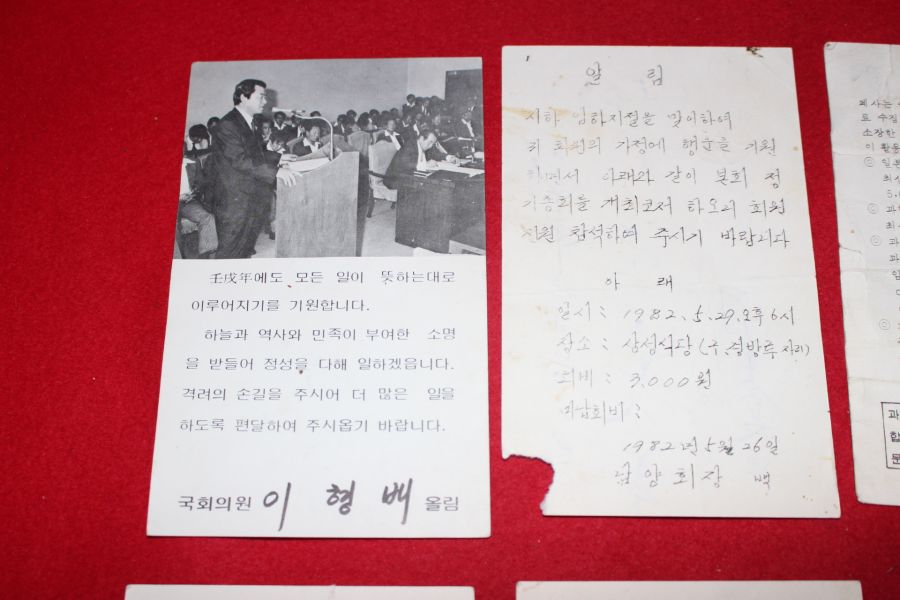 壬戌年에도 모든 일이 뜻하는대로
이루어지기를 기원합니다.
하늘과 역사와 민족이 부여한 소명
을 받들어 정성을 다해 일하겠읍니다.
격려의 손길을 주시어 더 많은 일을
하도록 편달하여 주시옵기 바랍니다.
국회의원 이형배 올림
알 림
시하 임하지절을 맞이하여
귀 회원의 가정에 행운을 기원
하면서 아래와 같이 본회 정
기총회를 개최코저 하오니 회원
전원 참석하여 주시기 바랍니다
아 래
일시 : 1982. 5. 29. 오후 6시
장소 : 삼성식당 (구. 경방루 자리)
회비 : 3,000원
미납회비 :
1982년 5월 26일
남양회장 백
폐사는
료 수집
소장한
이 활용
◎ 일본
최신
◎ 과
최
◎ 과
과